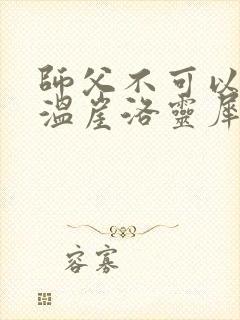 師父不可以
溫崖洛靈犀
容寡